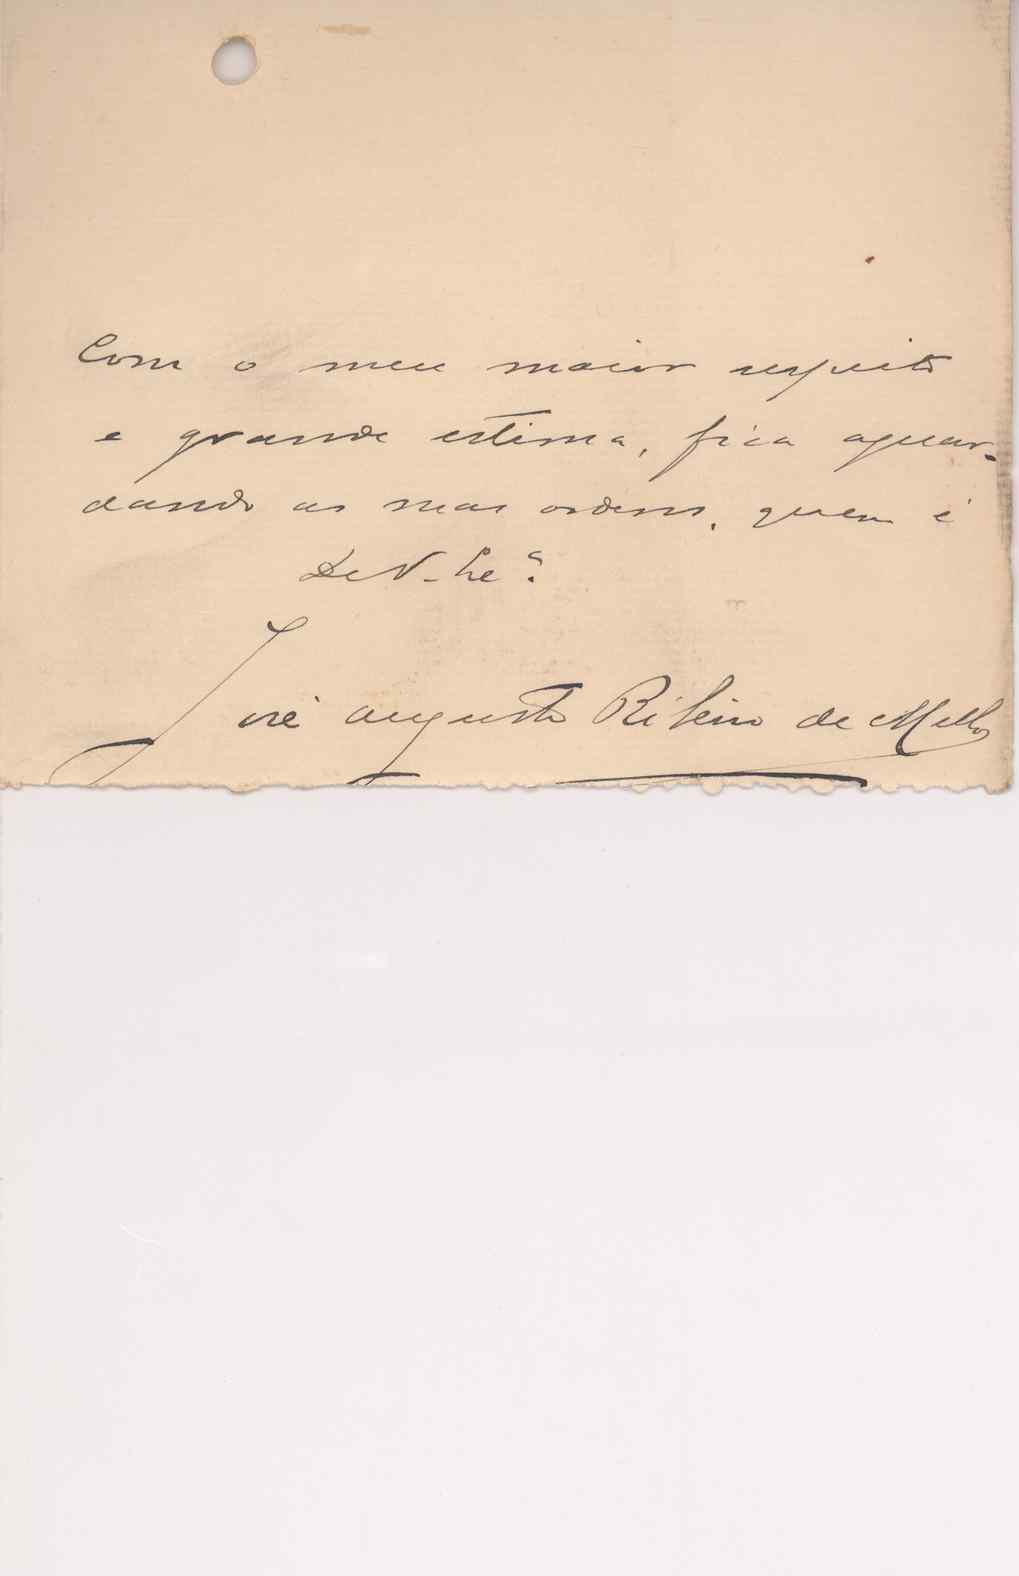 Com o meu maior respeito
e grande estima, fica aguar-
dando as suas ordens, quem é
De V.
José Augusto Ribeiro de Mello